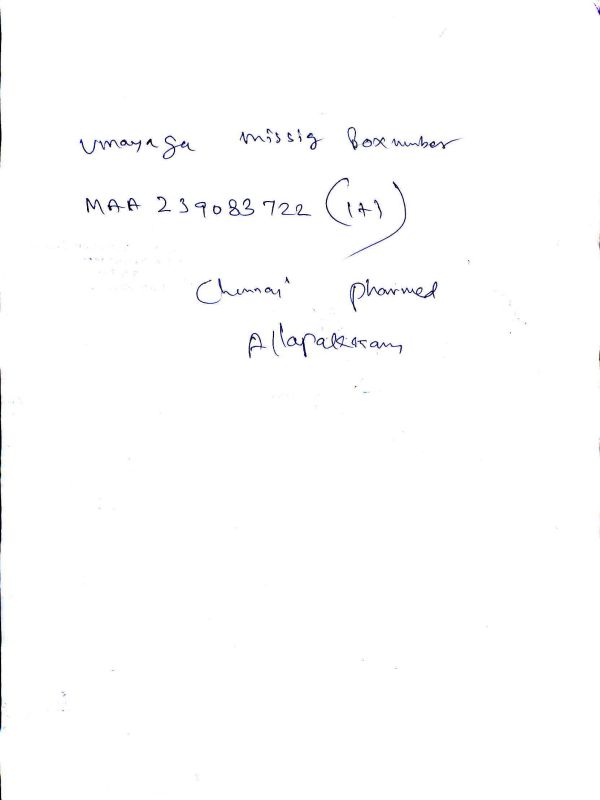 Vmayaga missig Box number
MAA 239083722 (1A1)
Chennai pharmed
Allapakkam